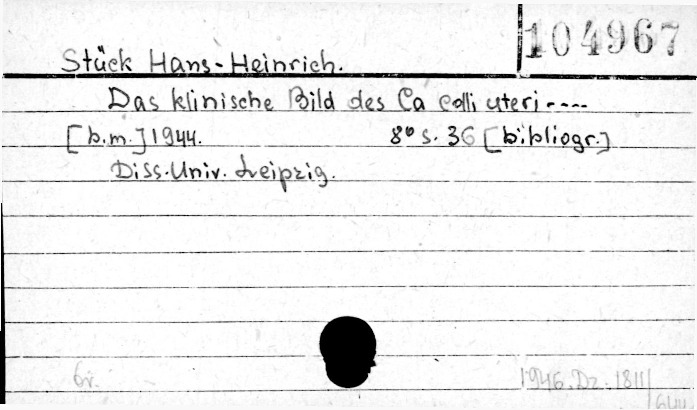 104967
Stück Hans-Heinrich.
Das klinische Bild des Ca colli uteri----
[b.m.] 1944. 8° s. 36 [bibliogr.]
Diss. Univ. Leipzig.
br. 1946. Dz. 1811